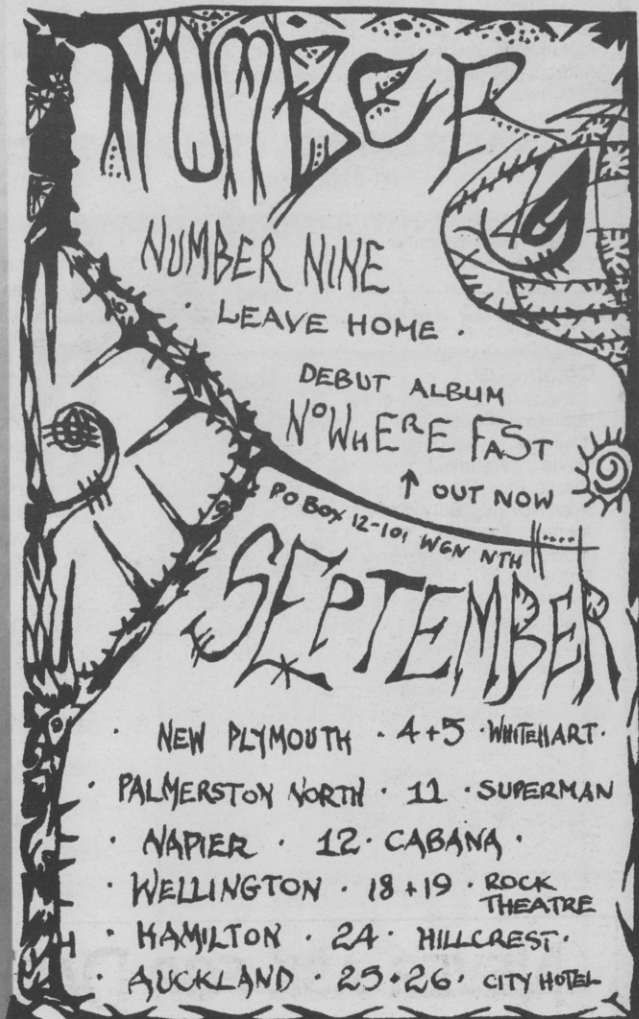 NUMBER
NUMBER NINE
· LEAVE HOME ·
DEBUT ALBUM
NOWHERE FAST
↑ OUT NOW
PO BOX 12-101 WGN NTH
SEPTEMBER
· NEW PLYMOUTH · 4+5 · WHITEHART ·
· PALMERSTON NORTH · 11 · SUPERMAN
· NAPIER · 12 · CABANA ·
· WELLINGTON · 18+19 · ROCK
THEATRE
· HAMILTON · 24 · HILLCREST ·
· AUCKLAND · 25·26 · CITY HOTEL